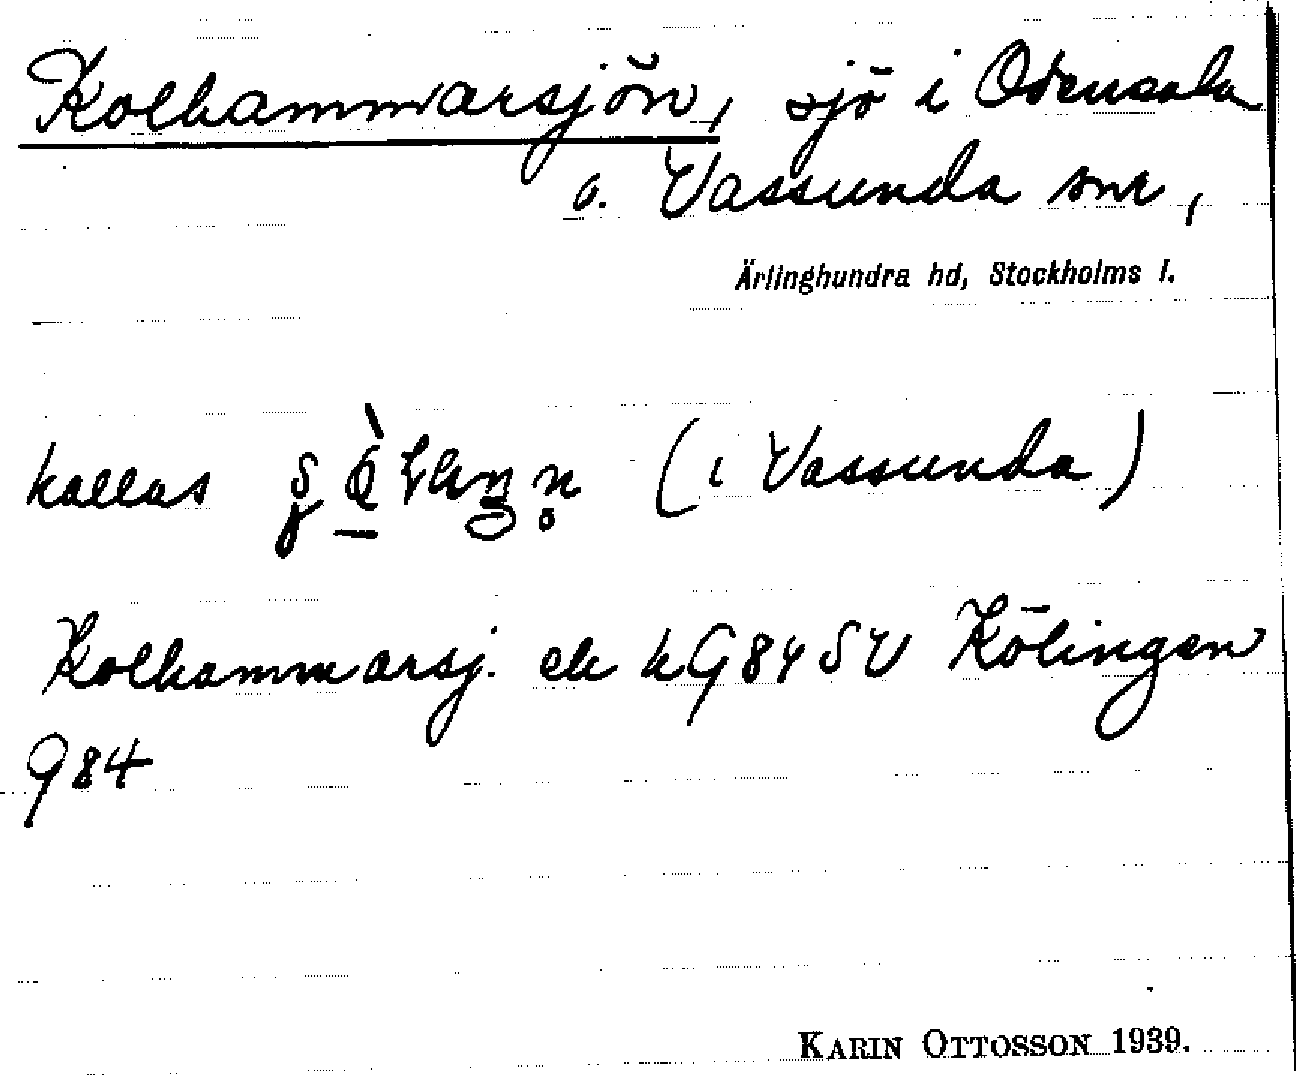 Kolhammarsjön, sjö i Odensala
o. Vassunda snr,
Ärlinghundra hd, Stockholms l.
kallas (i Vassunda)
Kolhammarsj. ek h984SV Kölingen
984
KARIN OTTOSSON 1939.